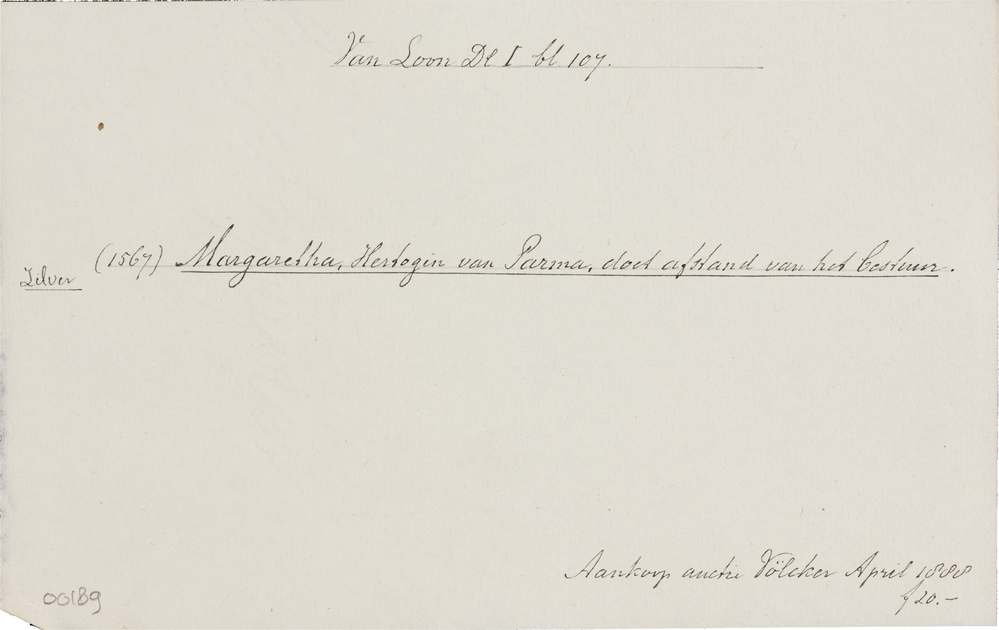 Van Loon Dl I bl 107.
(1567) Margaretha, Hertogin van Parma, doet afstand van het bestuur.
Zilver
Aankoop auctie Völcker April 1888
ƒ 20.-
00189